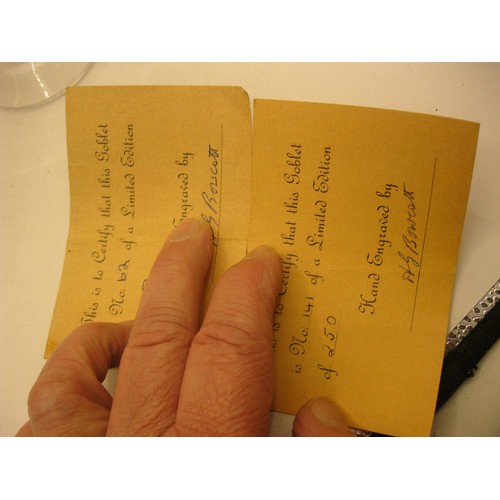 This is to Certify that this Goblet
No. 62 of a Limited Edition
Engraved by
A G Bowcott
is to Certify that this Goblet
is No. 141 of a Limited Edition
of 250
Hand Engraved by
A G Bowcott